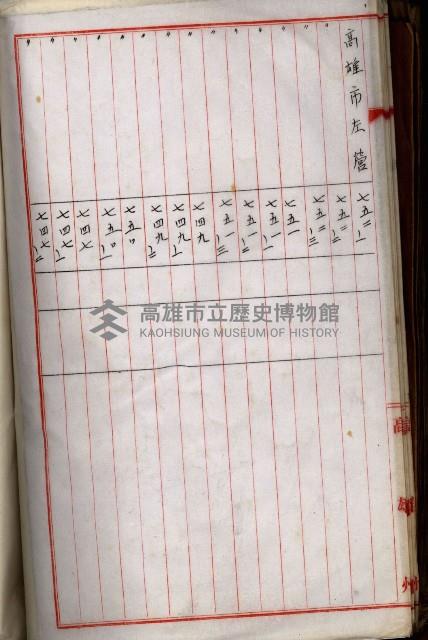 高雄市左營 七五二ノ一
〃 七五二ノ二
〃 七五二ノ三
〃 七五一
〃 七五一ノ一
〃 七五一ノ二
〃 七五一ノ三
〃 七四九
〃 七四九ノ一
〃 七四九ノ二
〃 七五〇
〃 七五〇ノ一
〃 七四七
〃 七四七ノ一
〃 七四七ノ二
高雄州
高雄市立歷史博物館
KAOHSIUNG MUSEUM OF HISTORY